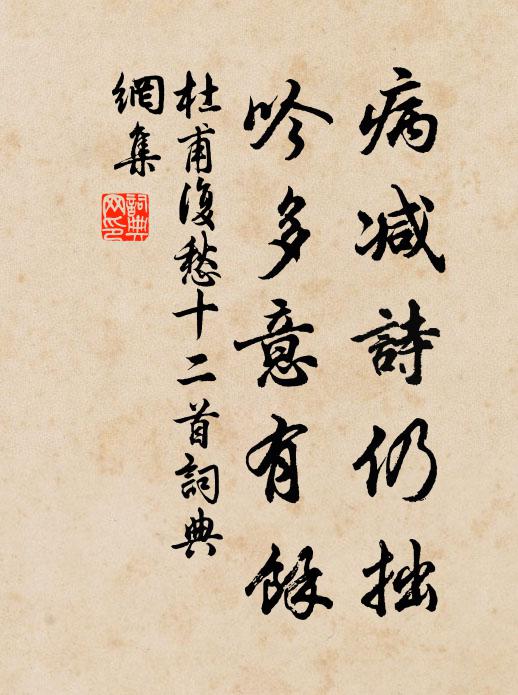 病减詩仍拙
吟多意有餘
杜甫復愁十二首詞典
網集
詞典
网印